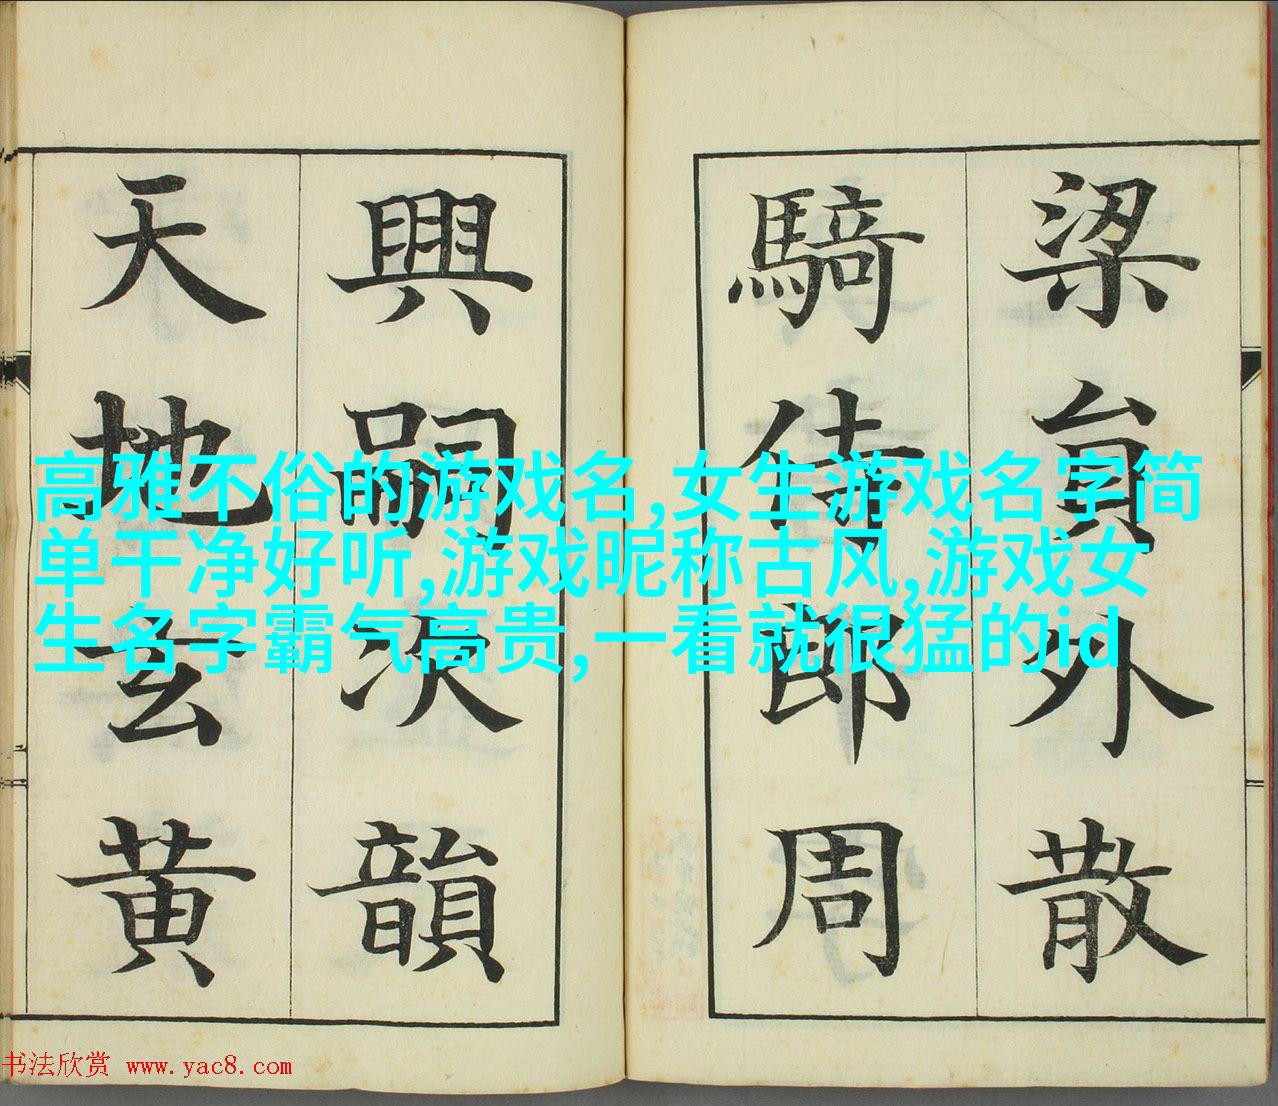 梁貟外散
騎侍郎周
興嗣次韻
天地玄黄
高雅不俗的游戏名,女生游戏名字简
单干净好听,游戏昵称古风,游戏女
生名字霸气高贵,一看就很猛的id
书法欣赏 www.yac8.com